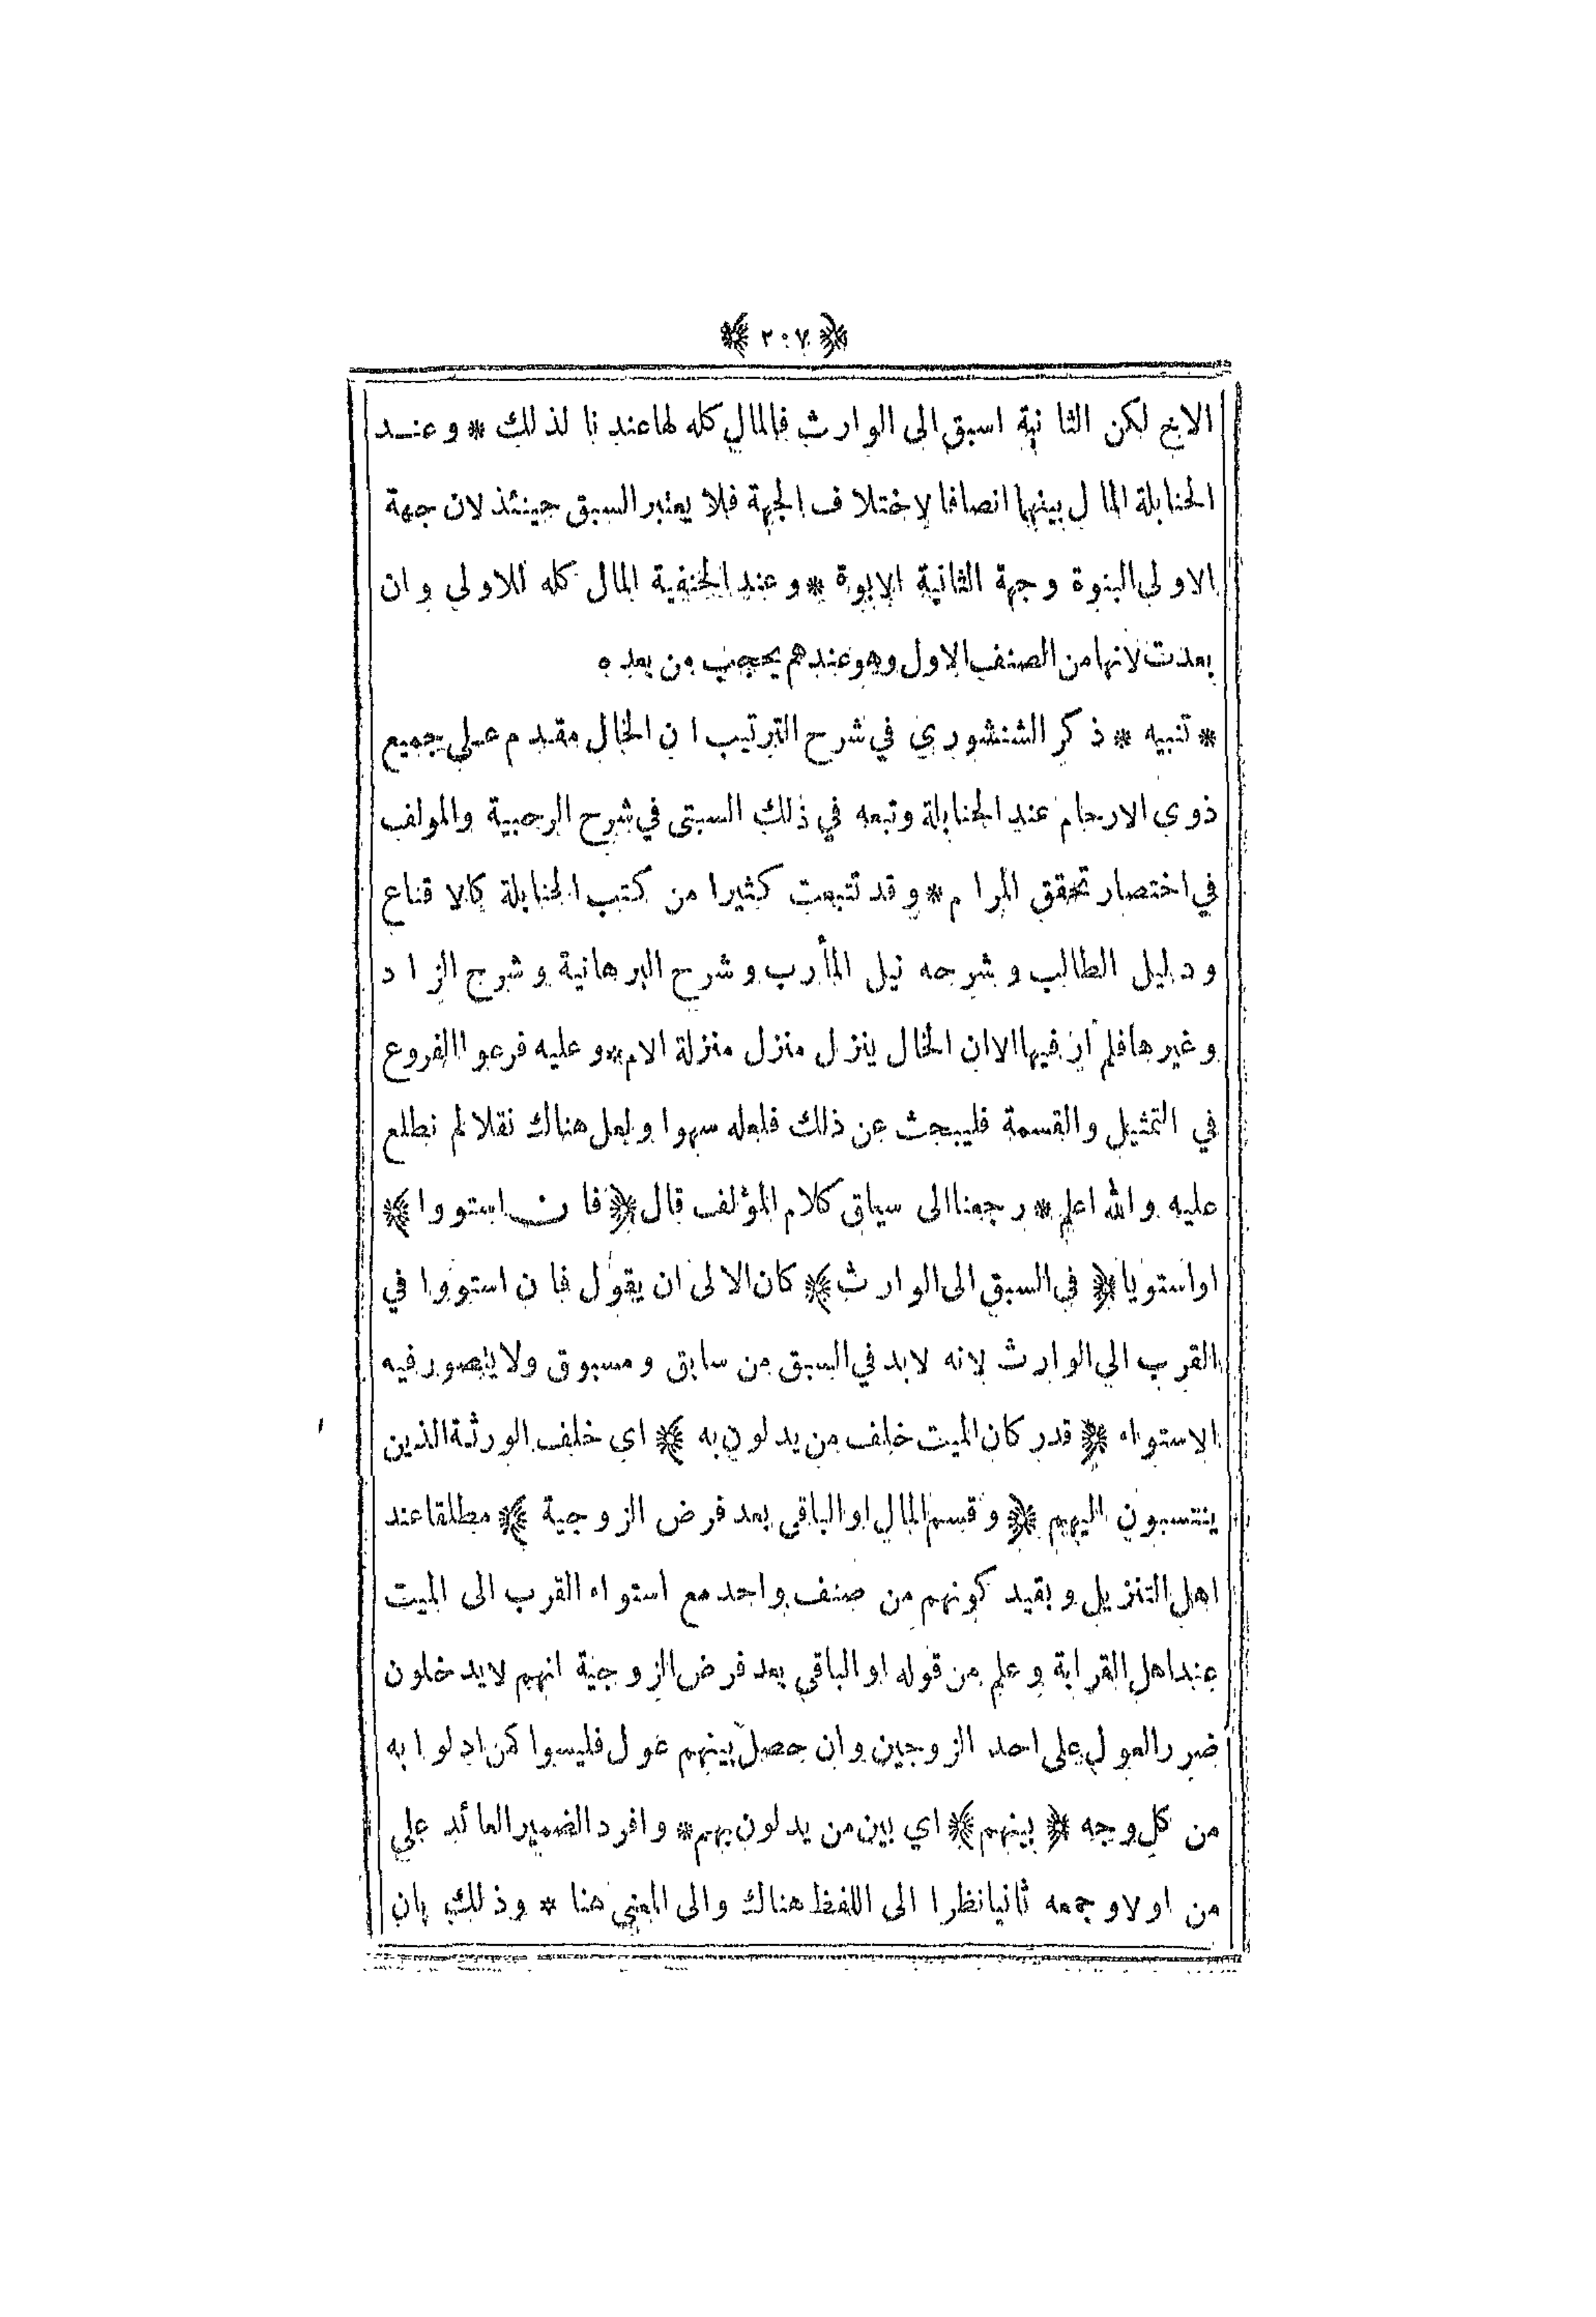 ﴿ ٢٠٧ ﴾
الاخ لكن الثانية اسبق الى الوارث فالمال كله لها عندنا لذلك * وعند
الحنابلة المال بينهما انصافا لاختلاف الجهة فلا يعتبر السبق حينئذ لان جهة
الاولى البنوة وجهة الثانية الابوة * وعند الحنفية المال كله للاولى وان
بعدت لانها من الصنف الاول وهو عندهم يحجب من بعده
* تنبيه * ذكر الشنشوري في شرح الترتيب ان الخال مقدم على جميع
ذوى الارحام عند الحنابلة وتبعه في ذلك السبتى في شرح الرحبية والمولف
في اختصار تحقق المرام * وقد تتبعت كثيرا من كتب الحنابلة كالاقناع
ودليل الطالب وشرحه نيل المأرب وشرح البرهانية وشرح الزاد
وغيرها فلم ار فيها الا ان الخال ينزل منزل منزلة الام * وعليه فرعوا الفروع
في التمثيل والقسمة فليبحث عن ذلك فلعله سهوا ولعل هناك نقلا لم نطلع
عليه والله اعلم * رجعنا الى سياق كلام المؤلف قال ﴿ فان استووا ﴾
او استويا ﴿ في السبق الى الوارث ﴾ كان الالى ان يقول فان استووا في
القرب الى الوارث لانه لابد في السبق من سابق ومسبوق ولا يتصور فيه
الاستواء ﴿ قدر كان الميت خلف من يدلون به ﴾ اي خلف الورثة الذين
ينتسبون اليهم ﴿ وقسم المال او الباقى بعد فرض الزوجية ﴾ مطلقا عند
اهل التنزيل وبقيد كونهم من صنف واحد مع استواء القرب الى الميت
عند اهل القرابة وعلم من قوله او الباقي بعد فرض الزوجية انهم لا يدخلون
ضرر العول على احد الزوجين وان حصل بينهم عول فليسوا كمن ادلوا به
من كل وجه ﴿ بينهم ﴾ اي بين من يدلون بهم * وافرد الضمير العائد على
من اولا وجمعه ثانيا نظرا الى اللفظ هناك والى المعنى هنا * وذلك بان